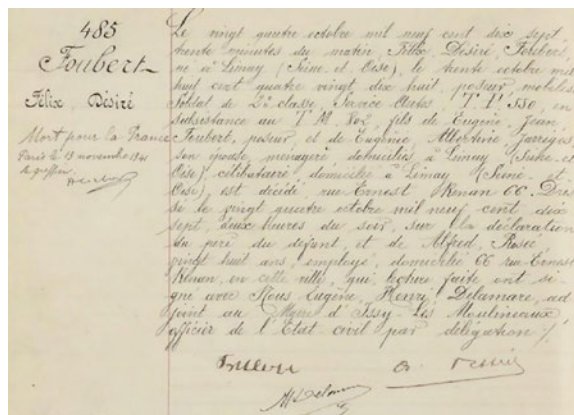 485
Foubert
Félix, Désiré
Mort pour la France
Paris le 13 novembre 1941
Le greffier
Le vingt quatre octobre mil neuf cent dix sept,
trente minutes du matin, Félix Désiré, Foubert,
né à Limay (Seine et Oise), le trente octobre mil
huit cent quatre vingt dix huit, poseur mobiles
Soldat de 2e classe, Service Autos, T. P. 550, en
subsistance au T M. 802, fils de Eugène, Jean
Foubert, poseur, et de Eugénie, Albertine Jarrigas,
son épouse, ménagère domiciliés à Limay (Seine et
Oise), célibataire domicilié à Limay (Seine et
Oise), est décédé rue Ernest Renan 66. Dres
sé le vingt quatre octobre mil neuf cent dix
sept, deux heures du soir, sur la déclaration
du père du défunt, et de Alfred, Rosée,
vingt huit ans, employé, domicilié 66 rue Ernest
Renan, en cette ville, qui lecture faite ont si-
gné avec Nous Eugène, Henri, Delamare, ad
joint au Maire d'Issy-Les Moulineaux
officier de l'Etat-civil par délégation ./.
Foubert